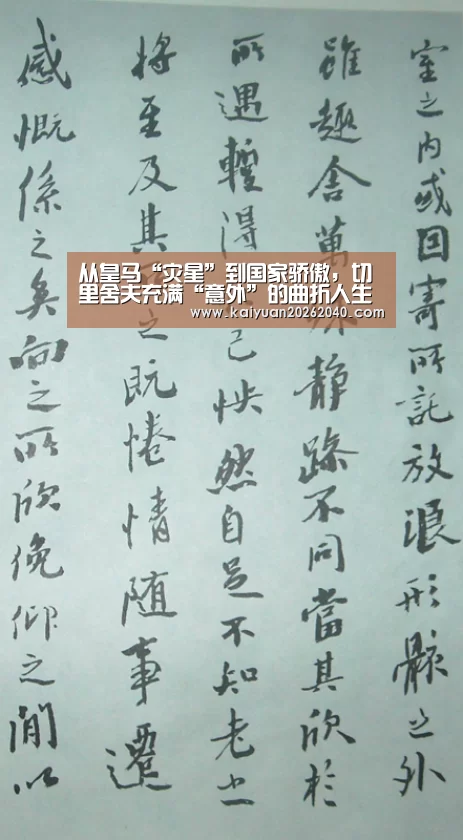 室之内或因寄所託放浪形骸之外
雖趣舍萬殊静躁不同當其欣於
所遇暫得己怏然自足不知老之
将至及其之既惓情随事遷
感慨係之矣向之所欣俛仰之閒以
从皇马“灾星”到国家骄傲，切
里舍夫充满“意外”的曲折人生
www.kaiyuan20262040.com